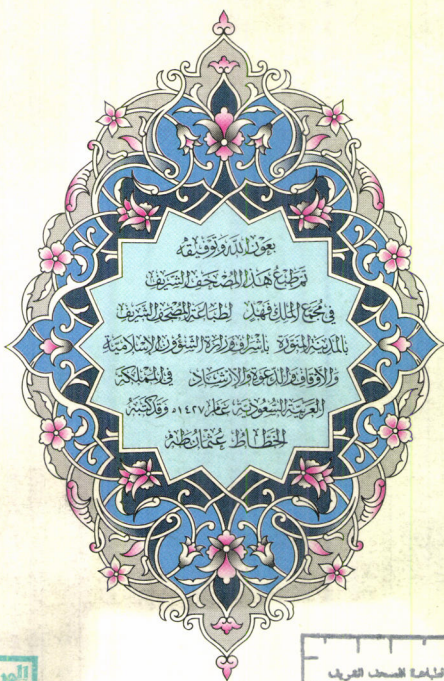 بعون الله وتوفيقه
تم طبع هذا المصحف الشريف
في مجمع الملك فهد لطباعة المصحف الشريف
بالمدينة المنورة بإشراف وزارة الشئون الإسلامية
والأوقاف والدعوة والإرشاد في المملكة
العربية السعودية عام ١٤٢٧هـ وقد كتبه
الخطاط عثمان طه
لطباعة المصحف الشريف